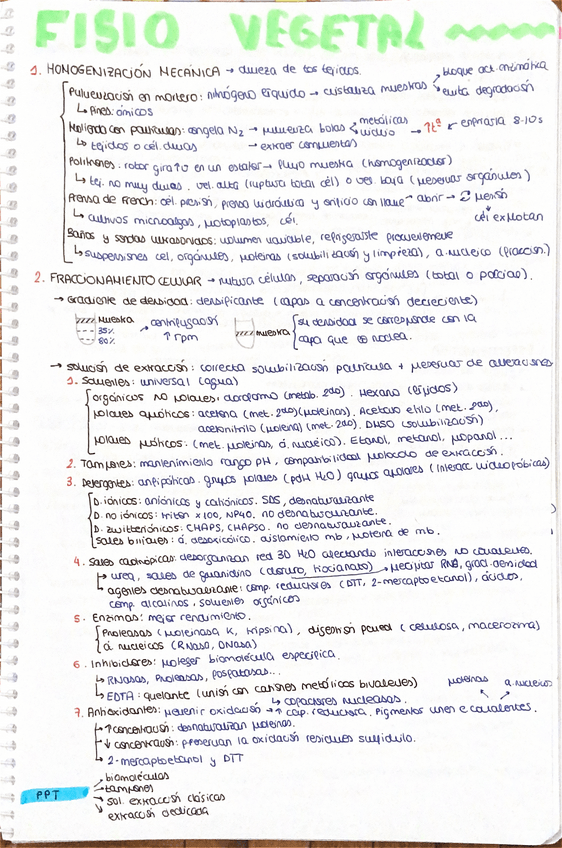 FISIO VEGETAL
1. HOMOGENIZACIÓN MECÁNICA → dureza de los tejidos. bloque act. enzimática
Pulverización en mortero: nitrógeno líquido → cristaliza muestras evita degradación
↳ Fines: ómicos
Molienda con partículas: congela N2 → pulveriza bolas metálicas vidrio → ↑tª ↙ enfriarla 8-10s
↳ tejidos o cél. duras → extraer compuestas
Politrones: rotor gira ↑v en un estator → flujo muestra (homogenizador)
↳ tej. no muy duros. vel. alta (ruptura total cél) o vel. baja (preservar orgánulos)
Prensa de French: cél. presión, prensa hidráulica y orificio con llave → abrir → presión
↳ cultivos microalgas, protoplastos, cél. cél explotan
Baños y sondas ultrasonidos: volumen variable, refrigerarse previamente
↳ suspensiones cel, orgánulos, proteínas (solubilización y limpieza), a. nucleico (fracción.)
2. FRACCIONAMIENTO CELULAR → rotura células, separación orgánulos (total o parcial).
→ Gradiente de densidad: densificante (capas a concentración decreciente)
muestra
35%
80%
centrifugación
↑ rpm
muestra
su densidad se corresponde con la
capa que lo rodea.
→ solución de extracción: correcta solubilización partícula + preservar de alteraciones
1. Solventes: universal (agua)
orgánicos no polares: cloroformo (metab. 2do). Hexano (lípidos)
polares apróticos: acetona (met. 2do)(proteínas). Acetato etilo (met. 2do),
acetonitrilo (proteína) (met. 2do). DMSO (solubilización)
polares próticos: (met. proteínas, á. nucleico). Etanol, metanol, propanol...
2. Tampones: mantenimiento rango pH, compatibilidad protocolo de extracción.
3. Detergentes: anfipáticos. grupos polares (pdH H2O) grupos apolares (interacc hidrofóbicas)
D. iónicos: aniónicos y catiónicos. SDS, desnaturalizante
D. no iónicos: triton x100, NP40, no desnaturalizante.
D. zwitteriónicos: CHAPS, CHAPSO. no desnaturalizante.
Sales biliares: á. desoxicólico. aislamiento mb, proteína de mb.
4. Sales caotrópicas: desorganizan red 3D H2O afectando interacciones no covalentes.
↳ urea, sales de guanidino (cloruro, tiocianato) → precipitar RNA, grad. densidad
↳ agentes desnaturalizante: comp. reductores (DTT, 2-mercaptoetanol), ácidos,
comp. alcalinos, solventes orgánicos
5. Enzimas: mejor rendimiento.
Proteasas (proteinasa K, tripsina), digestión pared (celulosa, macerozima)
á nucleicos (RNasa, DNasa)
6. Inhibidores: proteger biomolécula específica.
↳ RNasas, proteasas, fosfatasas...
↳ EDTA: quelante (unión con cationes metálicos bivalentes) proteínas a. nucleicos
↳ cofactores nucleasas.
7. Antioxidantes: prevenir oxidación → ↑ cap. reductora. Pigmentos unen e covalentes.
↑ concentración: desnaturalizan proteínas.
↓ concentración: preservan la oxidación residuos sulfidrilo.
↳ 2-mercaptoetanol y DTT
PPT
biomoléculas
tampones
sol. extracción clásicas
extracción dedicada